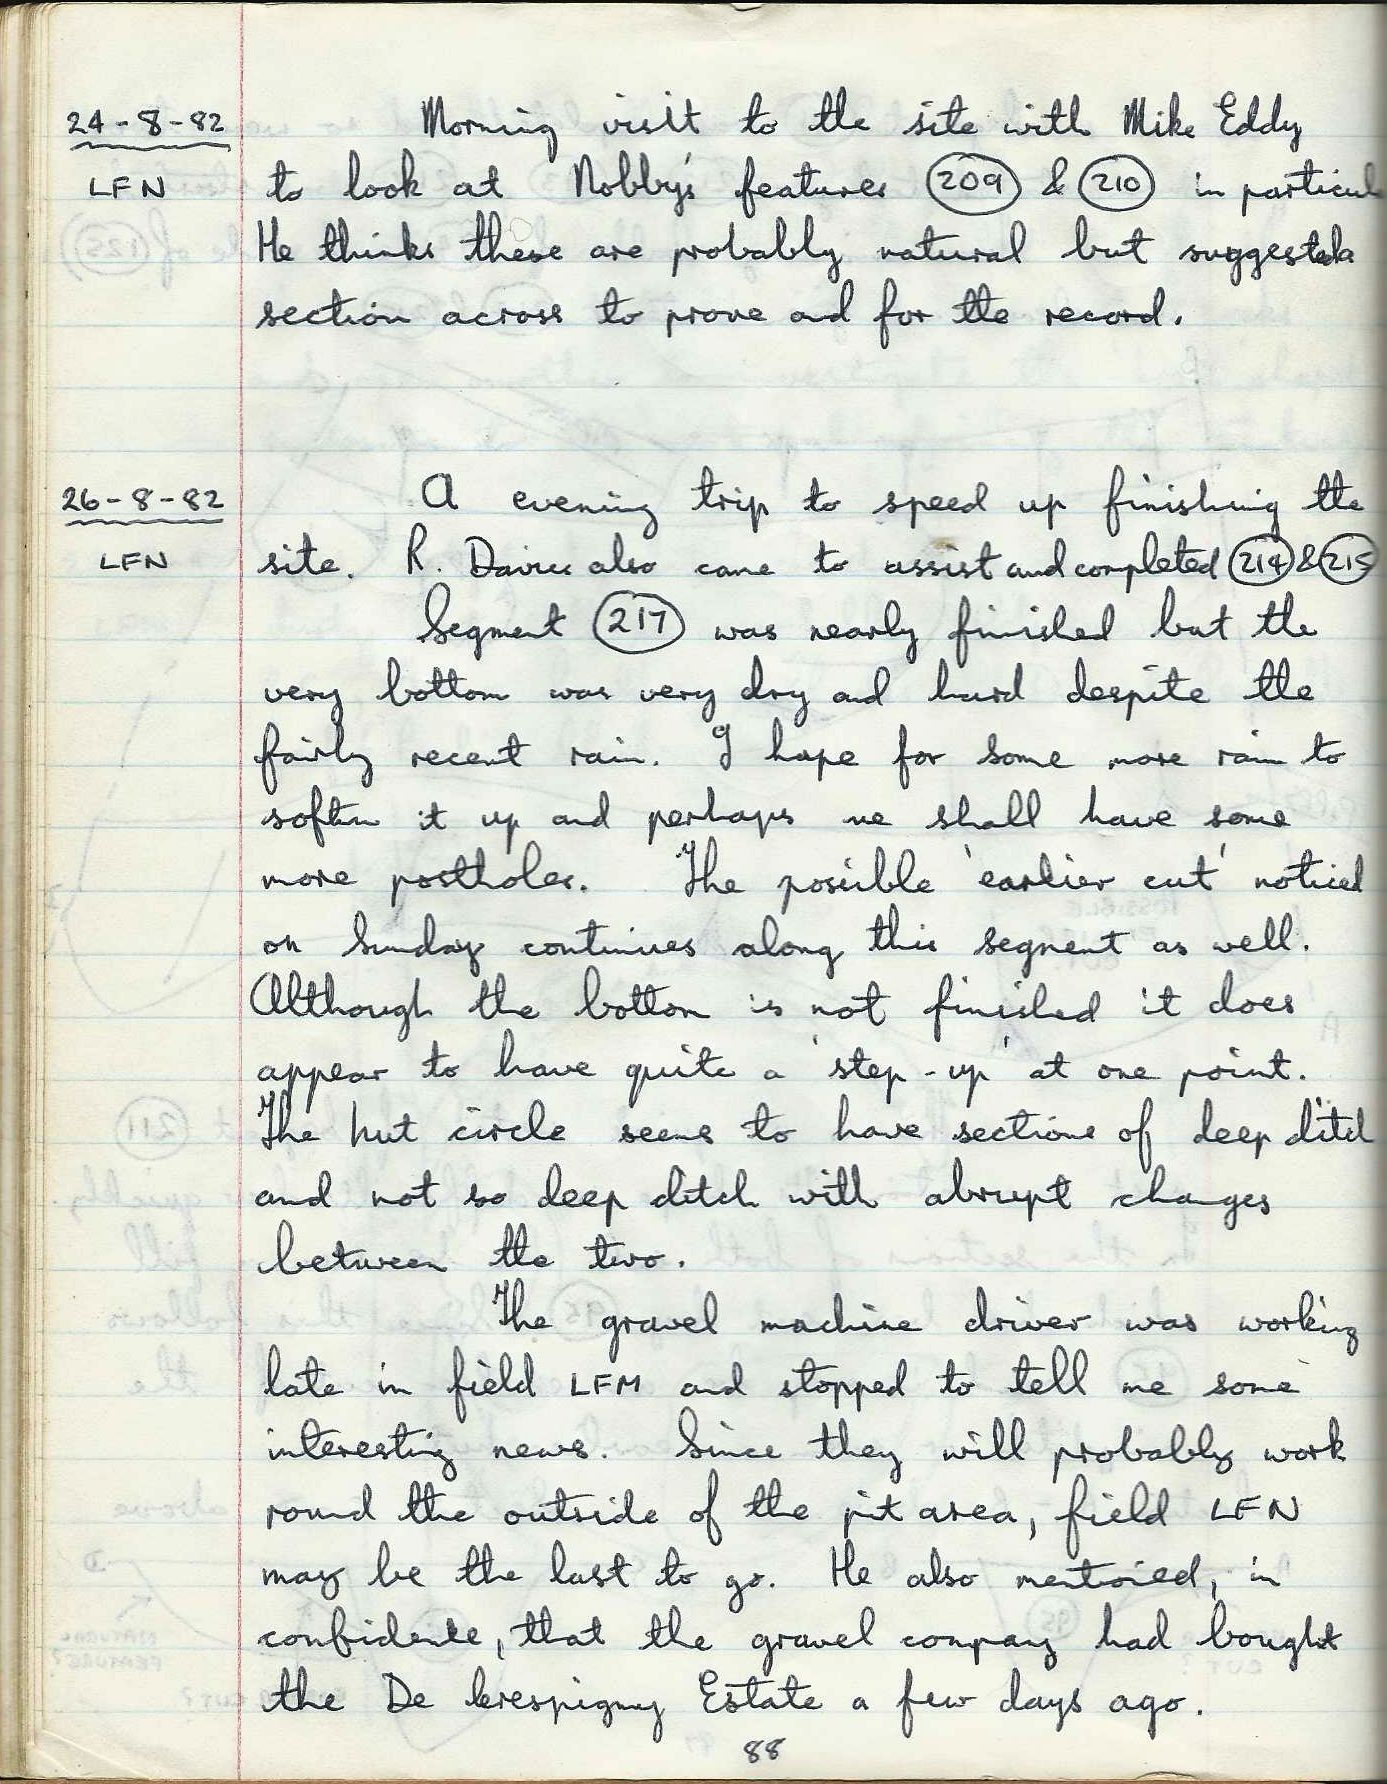 24-8-82 Morning visit to the site with Mike Eddy
LFN to look at Nobby's features 209 & 210 in particul
He thinks these are probably natural but suggested a
section across to prove and for the record.
26-8-82 A evening trip to speed up finishing the
LFN site. R. Davies also came to assist and completed 214 & 215
Segment 217 was nearly finished but the
very bottom was very dry and hard despite the
fairly recent rain. I hope for some more rain to
soften it up and perhaps we shall have some
more postholes. The possible 'earlier cut' noticed
on Sunday continues along this segment as well.
Although the bottom is not finished it does
appear to have quite a 'step-up' at one point.
The hut circle seems to have sections of deep ditch
and not so deep ditch with abrupt changes
between the two.
The gravel machine driver was working
late in field LFM and stopped to tell me some
interesting news. Since they will probably work
round the outside of the pit area, field LFN
may be the last to go. He also mentioned, in
confidence, that the gravel company had bought
the De Crespigny Estate a few days ago.
88